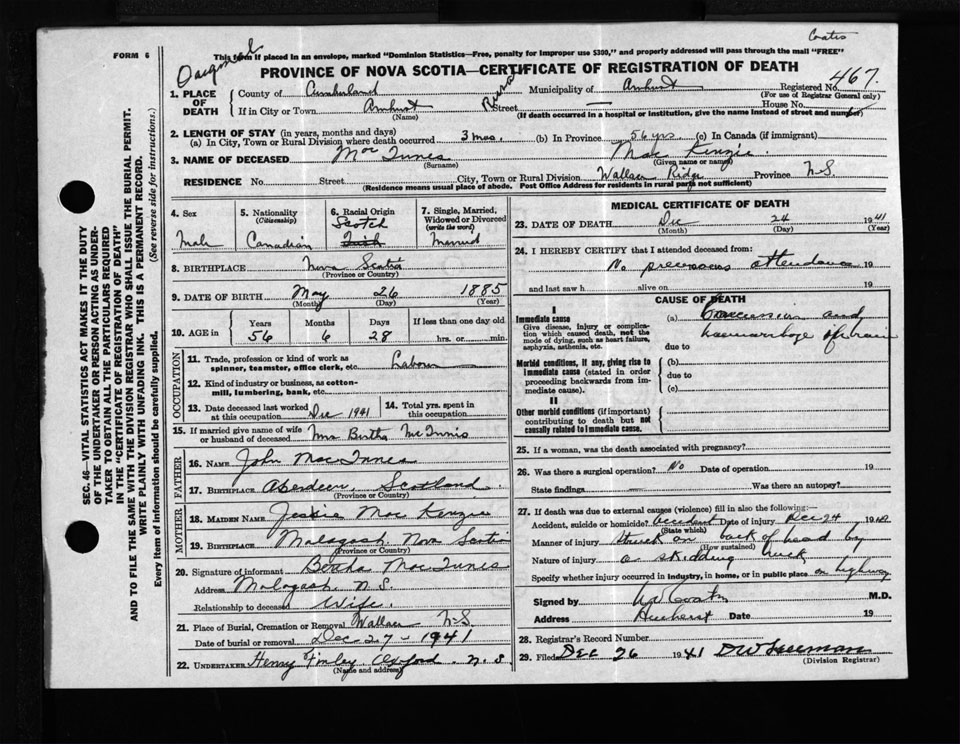 Coates
FORM 6
This form if placed in an envelope, marked "Dominion Statistics—Free, penalty for improper use $300," and properly addressed will pass through the mail "FREE"
PROVINCE OF NOVA SCOTIA—CERTIFICATE OF REGISTRATION OF DEATH
467.
1. PLACE OF DEATH
County of Cumberland Municipality of Amherst Registered No.
(For use of Registrar General only)
If in City or Town Amherst Street — House No.
(Name) (If death occurred in a hospital or institution, give the name instead of street and number)
2. LENGTH OF STAY (in years, months and days)
(a) In City, Town or Rural Division where death occurred 3 mos. (b) In Province 56 yrs (c) In Canada (if immigrant)
3. NAME OF DECEASED Mac Innes Mac Kenzie
(Surname) (Given name or names)
RESIDENCE No. Street City, Town or Rural Division Wallace Ridge Province N.S.
(Residence means usual place of abode. Post Office Address for residents in rural parts not sufficient)
4. Sex Male
5. Nationality (Citizenship) Canadian
6. Racial Origin Scotch
7. Single, Married, Widowed or Divorced (write the word) Married
8. BIRTHPLACE Nova Scotia
(Province or Country)
9. DATE OF BIRTH May 26 1885
(Month) (Day) (Year)
10. AGE in Years Months Days If less than one day old
56 6 28 hrs. or min.
OCCUPATION
11. Trade, profession or kind of work as spinner, teamster, office clerk, etc. Labour
12. Kind of industry or business, as cotton-mill, lumbering, bank, etc.
13. Date deceased last worked at this occupation Dec 1941 14. Total yrs. spent in this occupation
15. If married give name of wife or husband of deceased Mrs Bertha McInnis
FATHER
16. NAME John MacInnes
17. BIRTHPLACE Aberdeen, Scotland
(Province or Country)
MOTHER
18. MAIDEN NAME Jessie MacKenzie
19. BIRTHPLACE Malagash Nova Scotia
(Province or Country)
20. Signature of informant Bertha MacInnes
Address Malagash N.S.
Relationship to deceased Wife.
21. Place of Burial, Cremation or Removal Wallace N.S
Date of burial or removal Dec 27 - 1941
22. UNDERTAKER Henry Finley Oxford N.S
(Name and address)
MEDICAL CERTIFICATE OF DEATH
23. DATE OF DEATH Dec 24 1941
(Month) (Day) (Year)
24. I HEREBY CERTIFY that I attended deceased from:
No previous attendance 19
and last saw h alive on 19
CAUSE OF DEATH
I
Immediate cause
Give disease, injury or complication which caused death, not the mode of dying, such as heart failure, asphyxia, asthenia, etc.
(a) Concussion and
haemorrhage of brain
due to
Morbid conditions, if any, giving rise to immediate cause (stated in order proceeding backwards from immediate cause).
(b)
due to
(c)
II
Other morbid conditions (if important) contributing to death but not causally related to immediate cause.
25. If a woman, was the death associated with pregnancy?
26. Was there a surgical operation? No Date of operation 19
State findings — Was there an autopsy?
27. If death was due to external causes (violence) fill in also the following:—
Accident, suicide or homicide? accident Date of injury Dec 24 19
(State which)
Manner of injury struck on back of head by
(How sustained)
Nature of injury a skidding truck
Specify whether injury occurred in industry, in home, or in public place on highway
Signed by M.D.
Address Amherst Date 19
28. Registrar's Record Number
29. Filed Dec 26 1941
(Division Registrar)
SEC. 46—VITAL STATISTICS ACT MAKES IT THE DUTY
OF THE UNDERTAKER OR PERSON ACTING AS UNDERTAKER
TO OBTAIN ALL THE PARTICULARS REQUIRED
IN THE "CERTIFICATE OF REGISTRATION OF DEATH"
AND TO FILE THE SAME WITH THE DIVISION REGISTRAR WHO SHALL ISSUE THE BURIAL PERMIT.
WRITE PLAINLY WITH UNFADING INK. THIS IS A PERMANENT RECORD.
Every item of information should be carefully supplied. (See reverse side for instructions.)